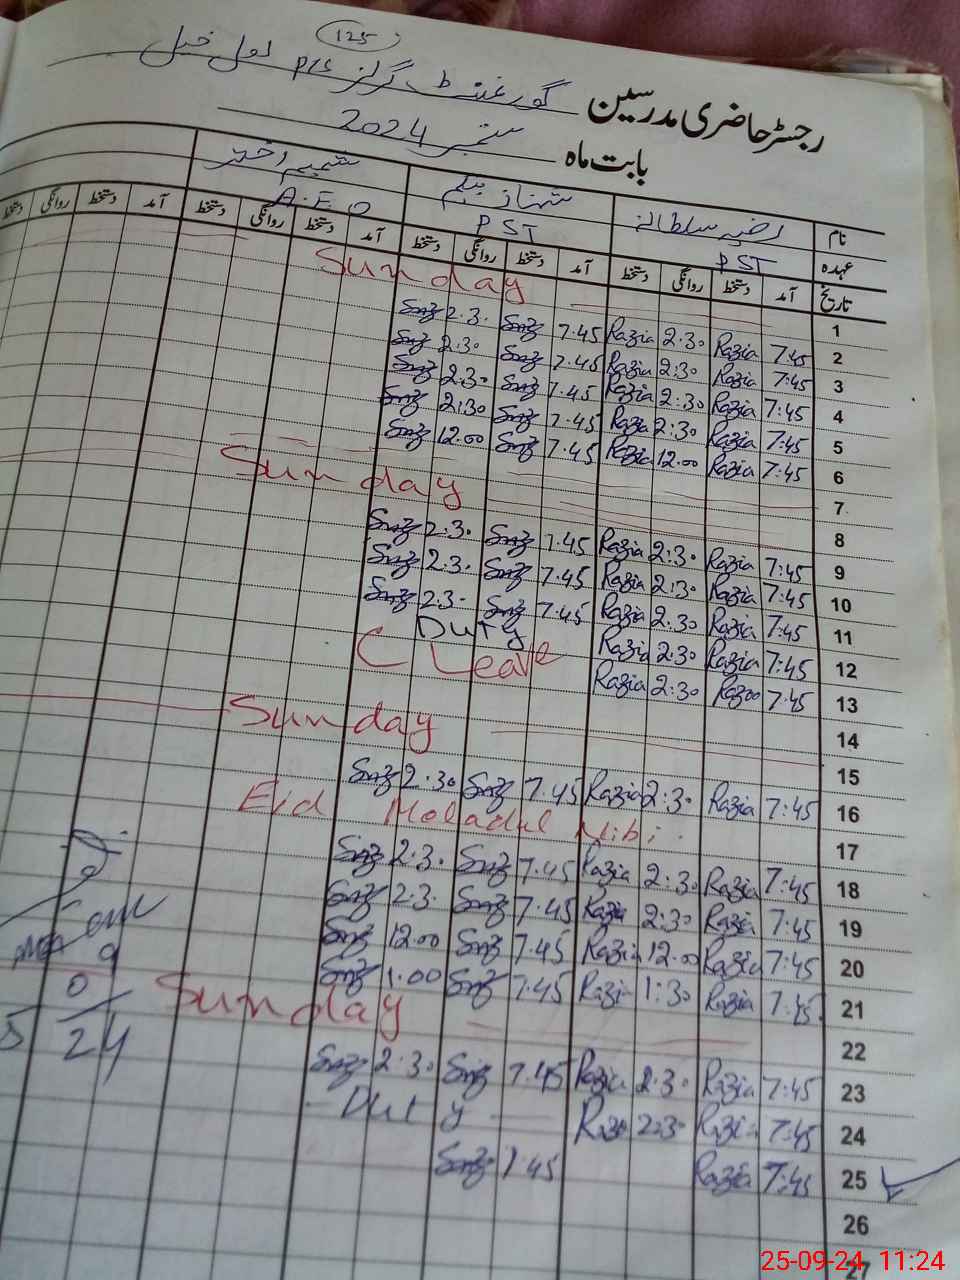 125
رجسٹر حاضری مدرسین گورنمنٹ گرلز P/S
بابت ماہ ستمبر 2024
نام رضیہ سلطانہ شہناز بیگم شمیم اختر
عہدہ PST PST A.E.O
تاریخ آمد دستخط روانگی دستخط آمد دستخط روانگی دستخط آمد دستخط روانگی دستخط آمد دستخط روانگی دستخط
1 Sunday
2 7:45 Razia 2:30 Razia 7.45 Smz 2.3.
3 7:45 Razia 2:30 Razia 7.45 Smz 2:30
4 7:45 Razia 2:30 Razia 7.45 Smz 2:30
5 7:45 Razia 2:30 Razia 7.45 Smz 2:30
6 7:45 Razia 12.00 Razia 7.45 Smz 12.00
7
8 Sunday
9 7:45 Razia 2:30 Razia 7.45 Smz 2.30
10 7:45 Razia 2:30 Razia 7.45 Smz 2.3.
11 7:45 Razia 2:30 Razia 7.45 Smz 2.3.
12 7:45 Razia 2:30 Razia Duty
13 7:45 Razia 2:30 Razia C Leave
14
15 Sunday
16 7:45 Razia 2:30 Razia 7.45 Smz 2.30
17 Eid Moladul Nibi.
18 7:45 Razia 2:30 Razia 7.45 Smz 2.3.
19 7:45 Razia 2:30 Razia 7.45 Smz 2.3.
20 7:45 Razia 12.00 Razia 7.45 Smz 12.00
21 7:45 Razia 1:30 Razi 7.45 Smz 1.00
22 Sunday
23 7:45 Razia 2:30 Razia 7.45 Smz 2:30
24 7:45 Razia 2:30 Raz Duty
25 7:45 Razia 7.45 Smz
26
27
9
0
24
25-09-24 11:24